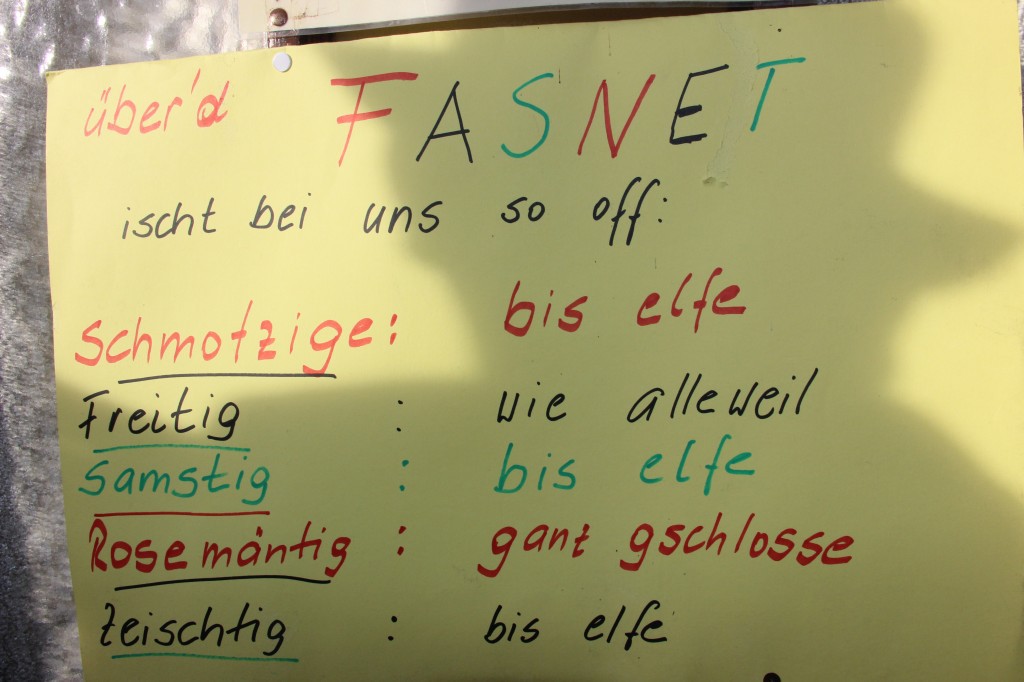 über'd FASNET
ischt bei uns so off:
Schmotzige: bis elfe
Freitig : wie alleweil
Samstig : bis elfe
Rosemäntig : ganz gschlosse
Zeischtig : bis elfe